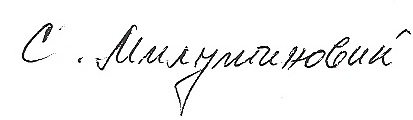 С. Милутиновић